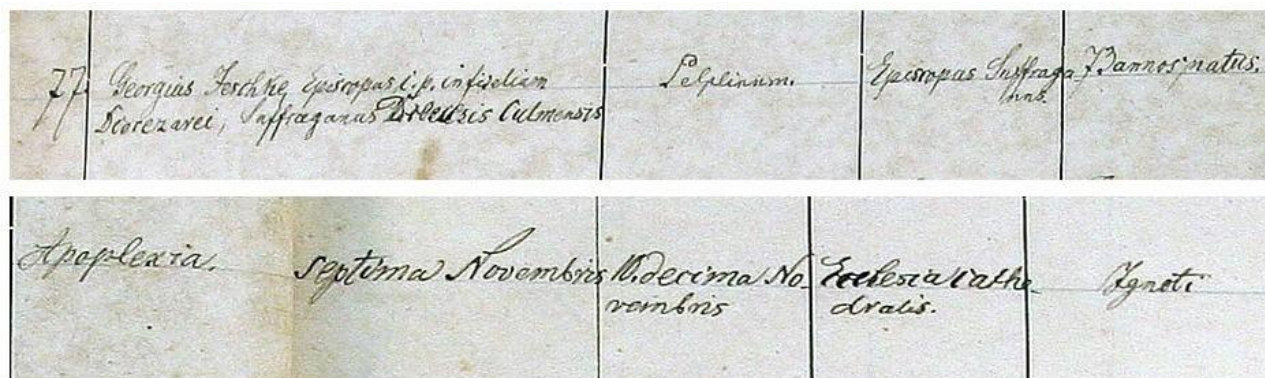 77.
Georgius Jeschke, Episcopus i. p. infidelium
Suffraganus Culmensis
Pelplinum.
Episcopus Suffraga
nus.
73 annos natus.
Apoplexia.
Septima Novembris
10. decima No-
vembris
Ecclesia Cathe-
dralis.
Ignoti